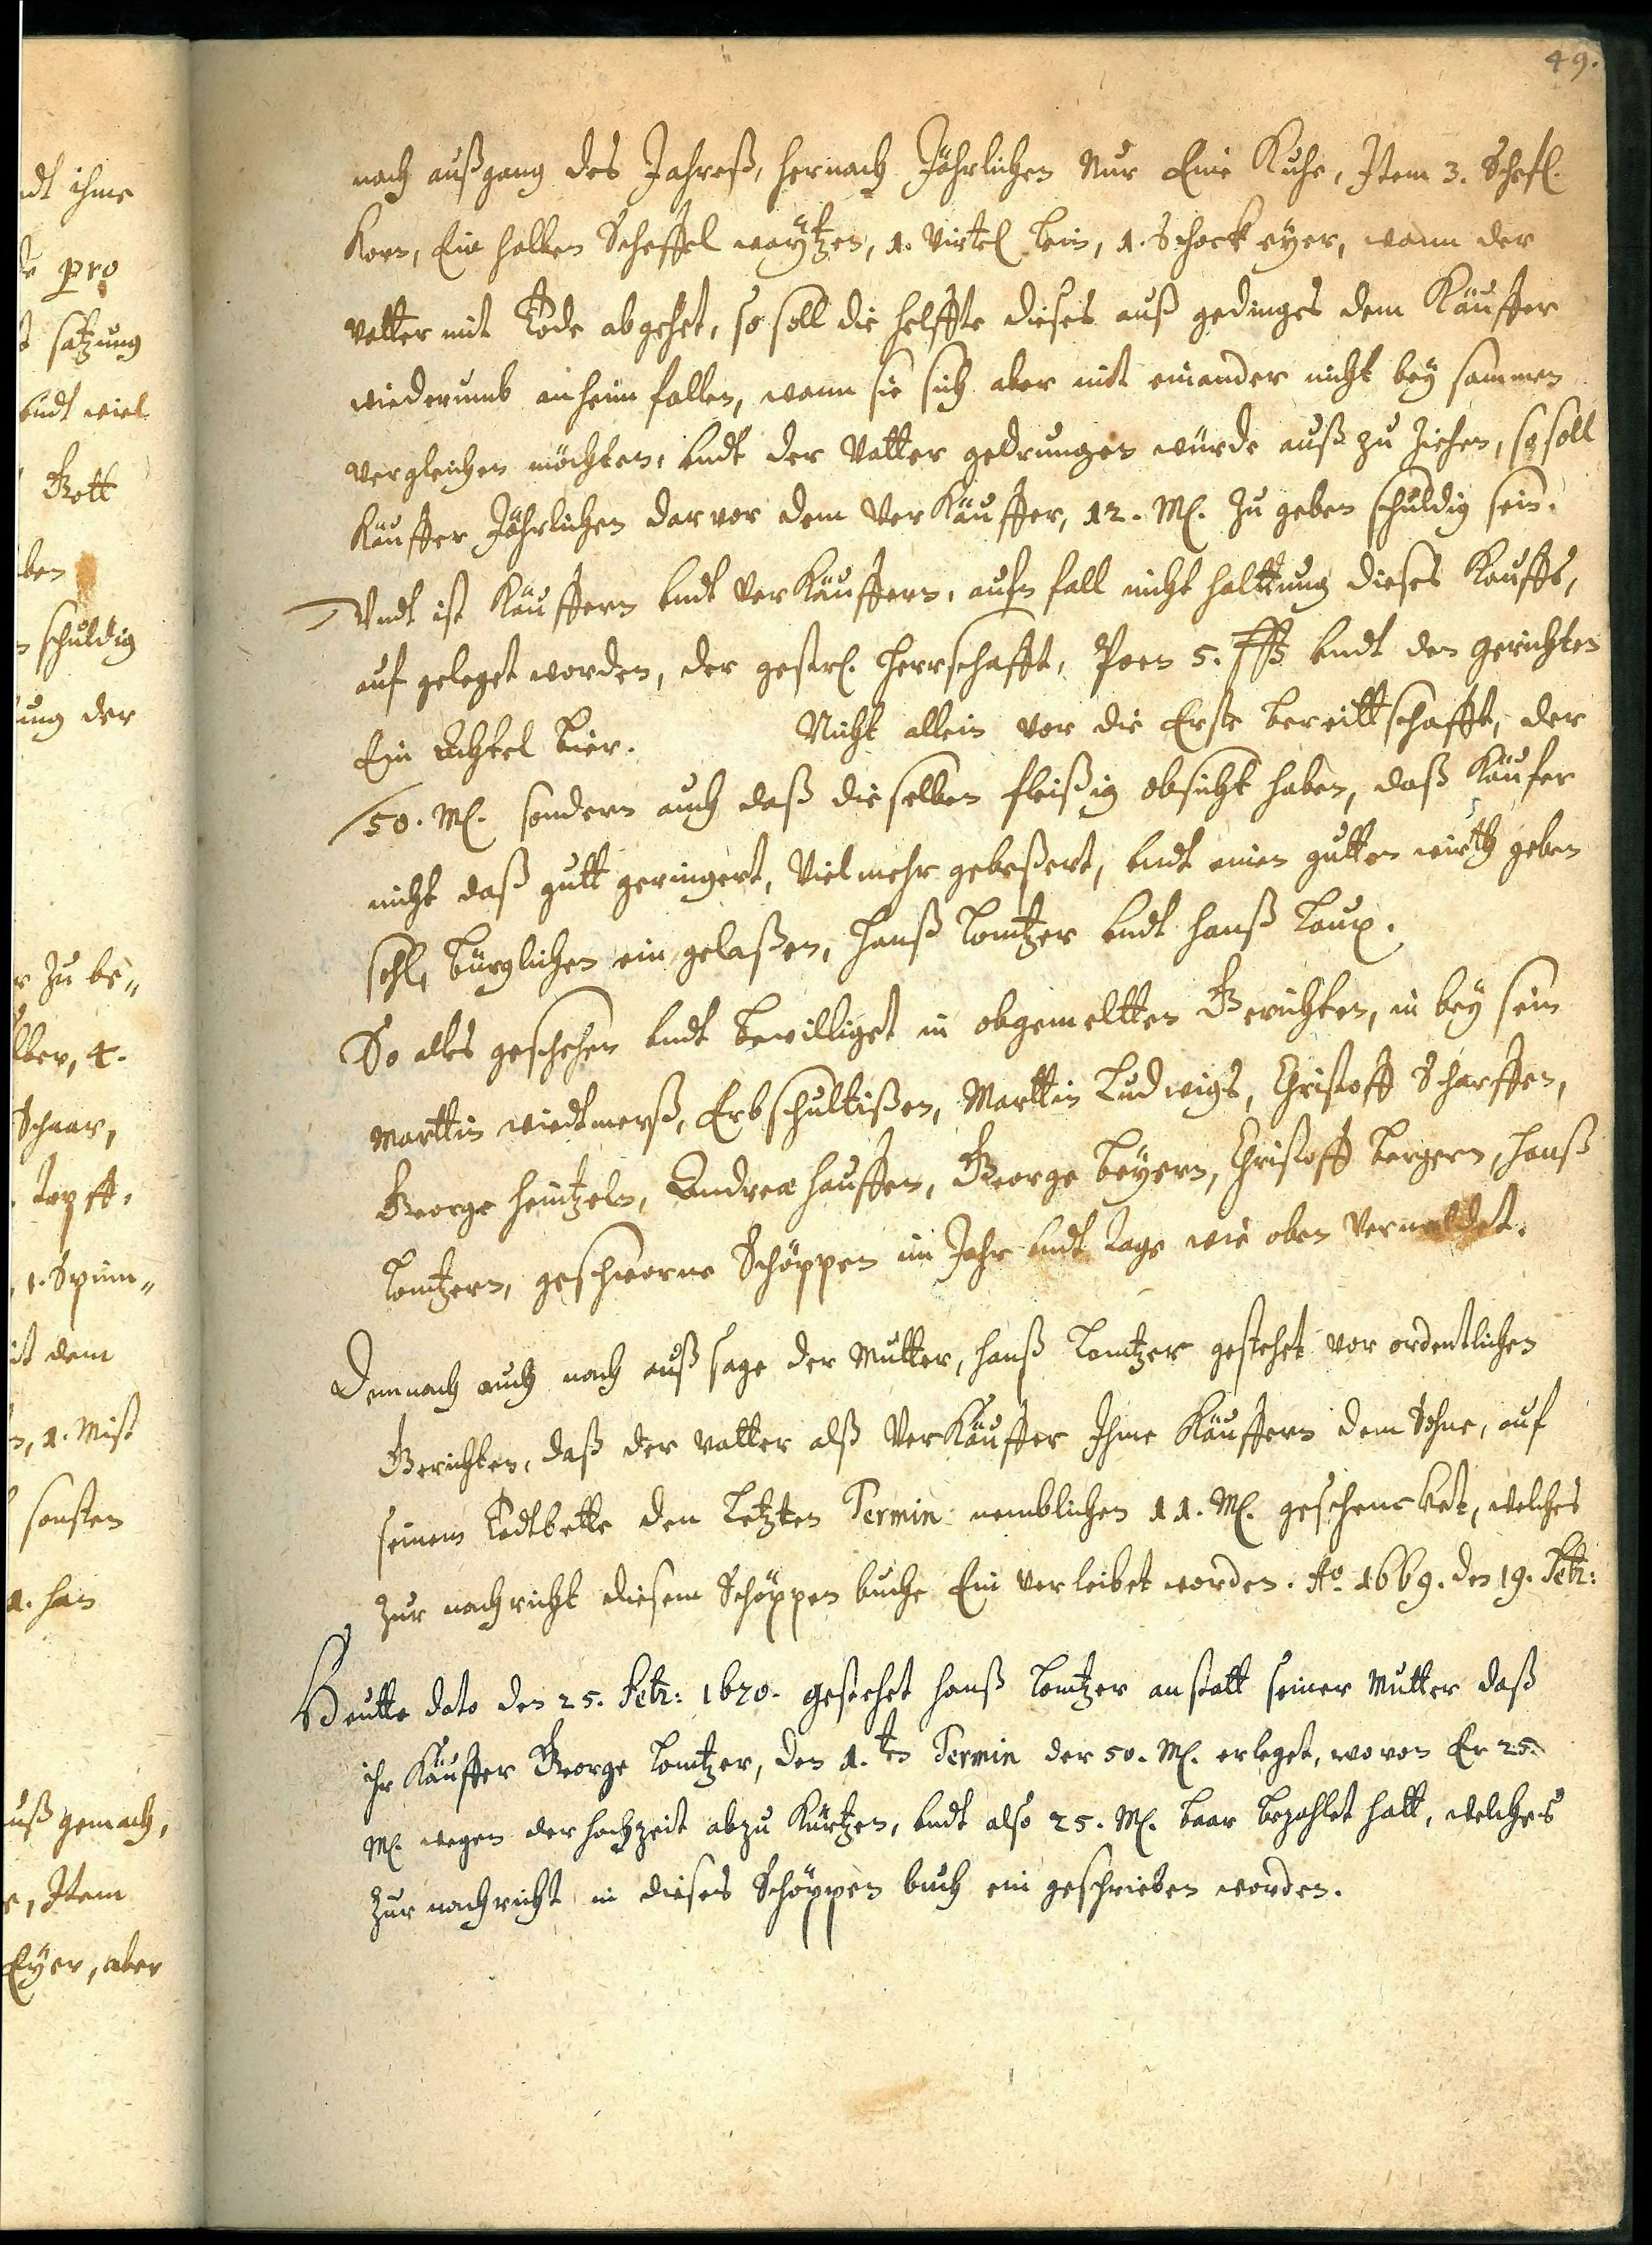 49.
nach außgang des Jahreß, hernach Jährlichen Nur Eine Kuhe, Item 3. Schefl.
Korn, Ein halben Scheffel waÿtzen, 1. Virtel Lein, 1. Schock eÿer, wann der
vatter mit Tode abgehet, so soll die helffte dieses auß gedinges dem Käuffer
wiederumb anheim fallen, wann sie sich aber mit einander nicht beÿ sammen
vergleichen möchten, undt der Vatter gedrungen würde auß zu ziehen, so soll
Käuffer Jährlichen darvor dem VerKäuffer, 12. M. zu geben schuldig sein.
Undt ist Käuffern undt VerKäuffern, aufn fall nicht halttung dieses Kauffs,
auf geleget worden, der gestr. Herrschafft, Poen 5. undt den gerichten
Ein Achtel Bier. Nicht allein vor die Erste bereittschafft, der
50. M. sondern auch daß dieselben fleißig obsicht haben, daß Käufer
nicht daß gutt geringert, Viel mehr gebeßert, undt einen gutten wirth geben
soll, bürglichen ein gelaßen, Hanß Lomtzer undt Hanß Laux.
So alles geschehen undt bewilliget in obgemeltten Gerichten, in beÿ sein
Marttin wiedtmerß, Erbschultißen, Marttin Ludwigs, Christoff Scharffen,
George Heintzeln, Andreæ Hauffen, George Beÿern, Christoff Bergern, Hanß
Lomtzern, geschworne Schöppen im Jahr undt tage wie oben Vermeldet.
Demnach auch nach außsage der Mutter, Hanß Lomtzer gestehet vor ordentlichen
Gerichten, daß der vatter alß VerKäuffer Ihme Käuffern dem Sohne, auf
seinem Todtbette den Letzten Termin nemblichen 11. M. geschencket, welches
zur nachricht diesem Schöppen buche Ein verleibet worden. Ao. 1669. den 19. Febr:
Heutte dato den 25. Febr: 1670. gestehet Hanß Lomtzer anstatt seiner Mutter daß
ihr Käuffer George Lomtzer, den 1.ten Termin der 50. M. erleget, wovon Er 25.
M. wegen der hochzeit abzu Kürtzen, undt also 25. M. baar bezahlet hatt, welches
zur nachricht in dieses Schöppen buch ein geschrieben worden.